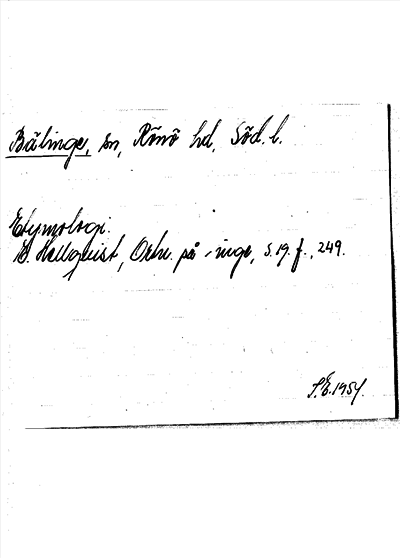 Bälinge, sn, Rönö hd, Söd. l.
Etymologi.
E. Hellquist, Ortn. på -inge, s. 19 f., 249.
S.E. 1954.